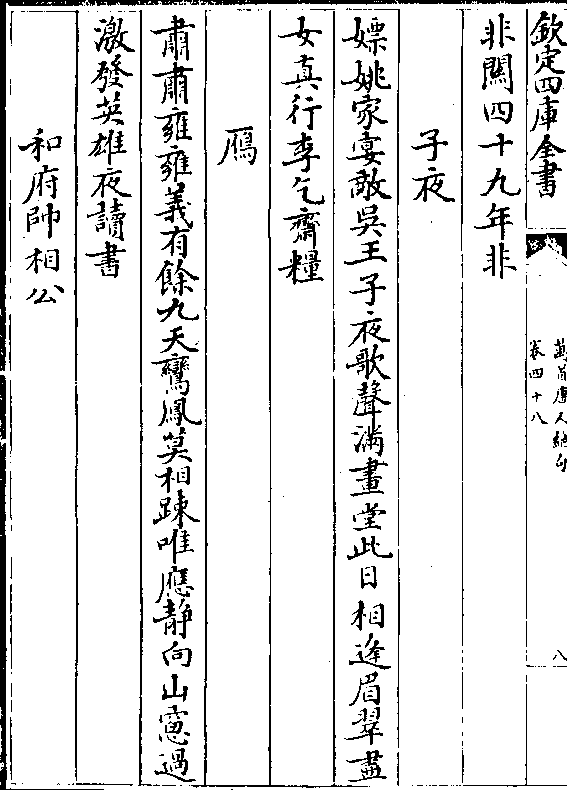 欽定四庫全書
萬首唐人絶句
卷四十八
八
非關四十九年非
子夜
嫖姚家宴敵吳王子夜歌聲滿畫堂此日相逢眉翠盡
女真行李乞齋糧
鴈
肅肅雍雍義有餘九天鸞鳳莫相踈唯應靜向山窻過
激發英雄夜讀書
和府帥相公